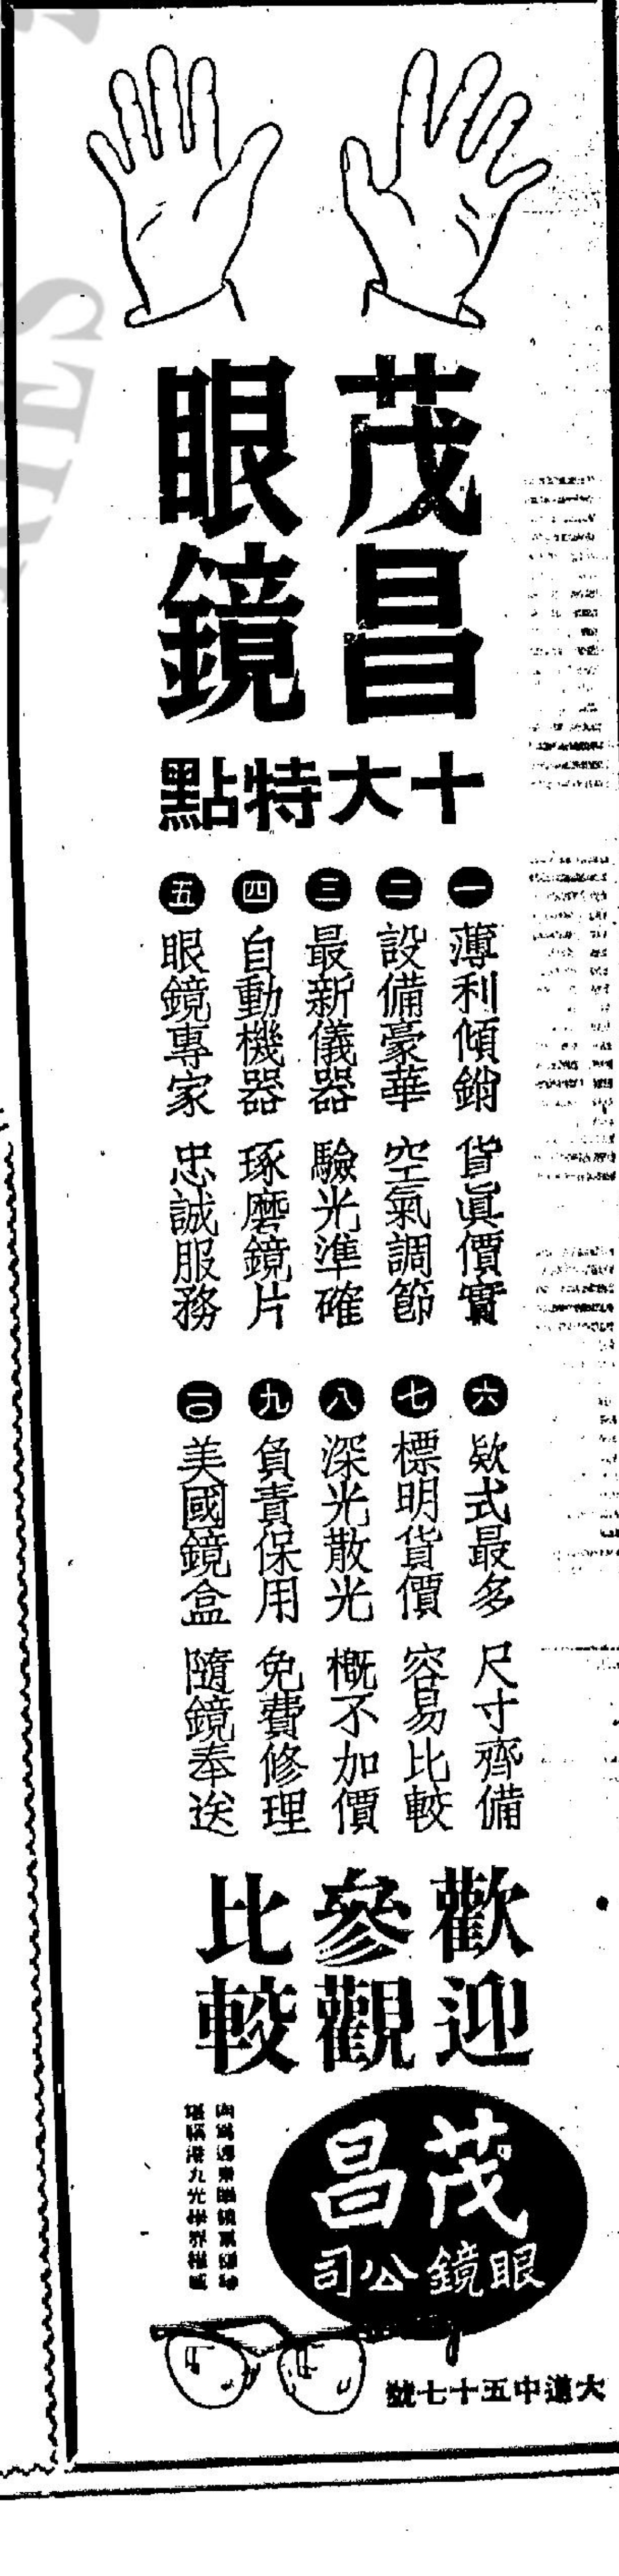 茂昌
眼鏡
十大特點
一 薄利傾銷 貨眞價實
二 設備豪華 空氣調節
三 最新儀器 驗光準確
四 自動機器 琢磨鏡片
五 眼鏡專家 忠誠服務
六 欵式最多 尺寸齊備
七 標明貨價 容易比較
八 深光散光 概不加價
九 負責保用 免費修理
一〇 美國鏡盒 隨鏡奉送
歡迎
參觀
比較
茂昌
眼鏡公司
港九光學界權威
大道中五十七號